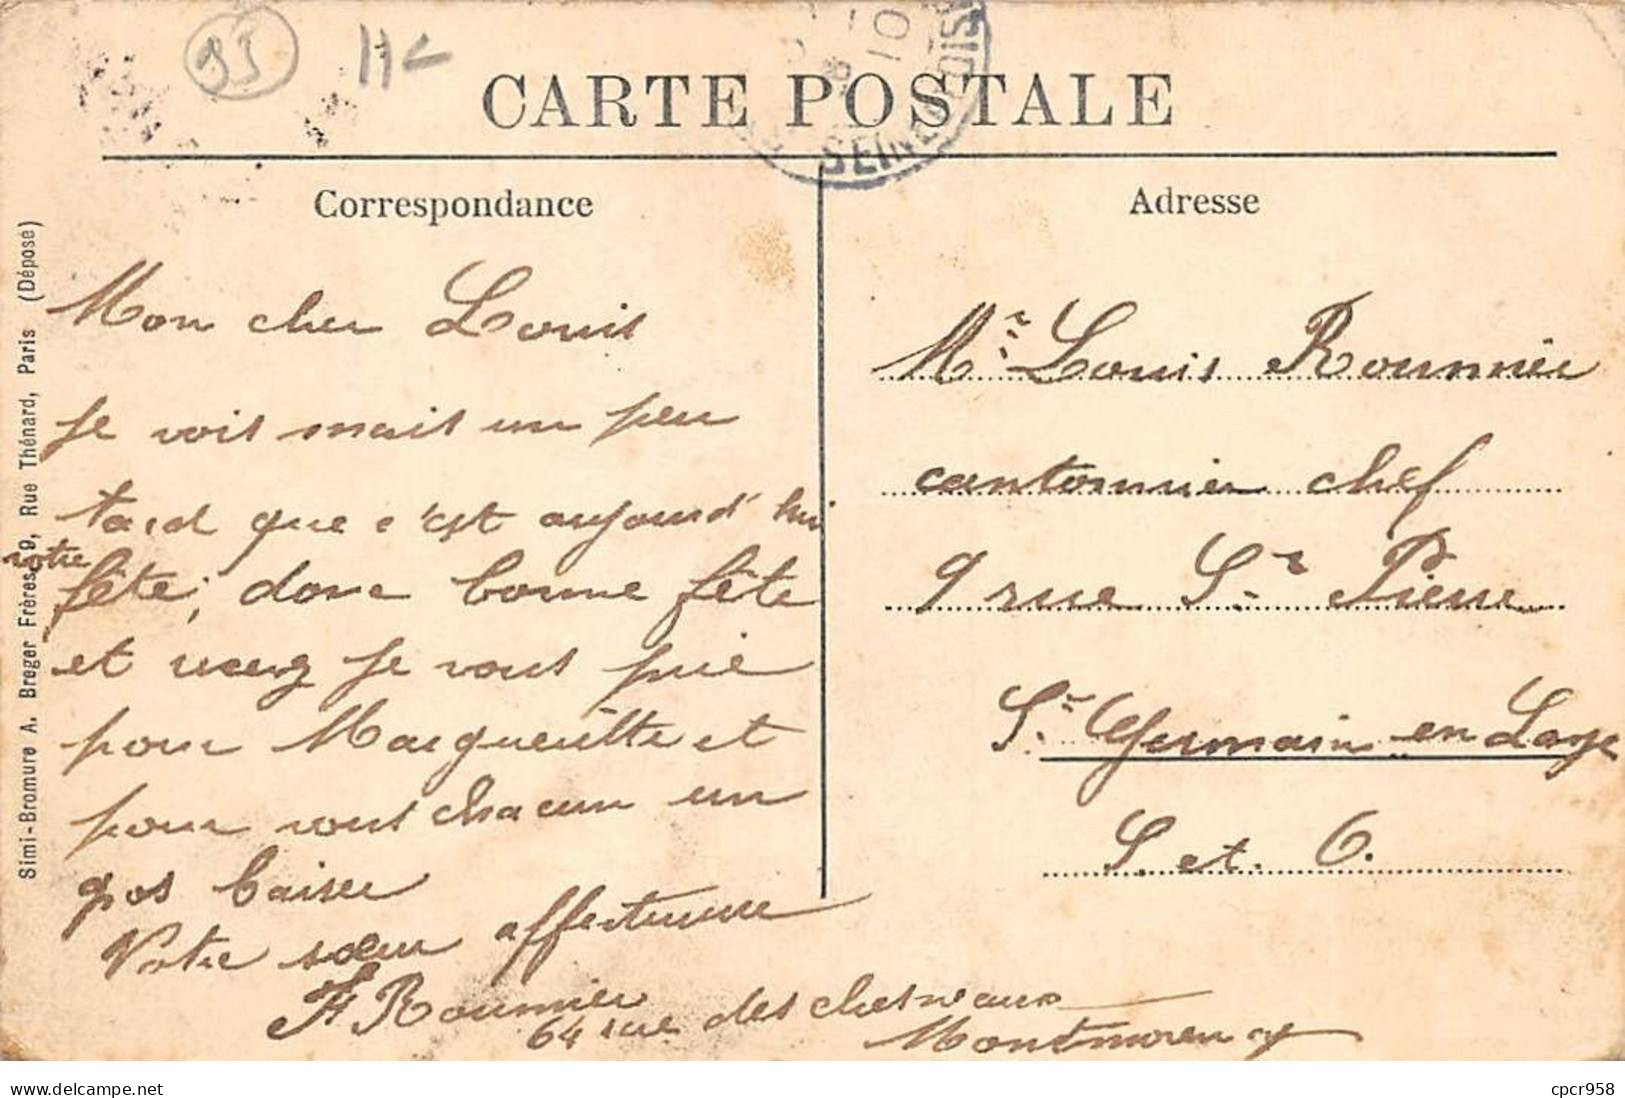 95
CARTE POSTALE
SEINE
10
Correspondance
Adresse
Simi-Bromure A. Breger Frères, 9, Rue Thénard, Paris (Déposé)
Mon cher Louis
Je vois mais un peu
tard que c'est aujourd'hui
votre
fête, donc bonne fête
et

je vous prie
pour Margueritte et
pour vous chacun un
gros baiser
Votre sœur affectueuse
Roumier
64 rue des chesneaux
Montmorency
Mr Louis Roumier
cantonnier chef
9 rue St Pierre
St. Germain en Laye
S. et. O.
delcampe.net
cpcr958